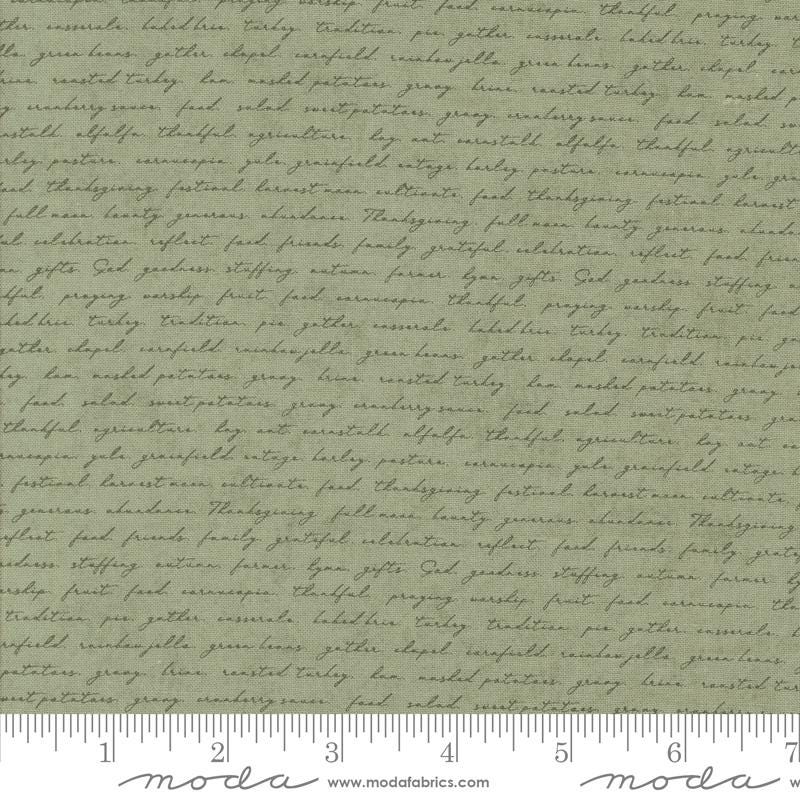 cornucopia. thankful. praying worship fruit food. cornucopia. thankful. praying
gather. casserole. baked brie. turkey. tradition. pie. gather. casserole. baked brie. turkey.
green beans. gather. chapel. cornfield. rainbow jello. green beans. gather. chapel.
brine. roasted turkey. ham. mashed potatoes. gravy. brine. roasted turkey. ham. mashed
cranberry sauce. food. salad. sweet potatoes. gravy. cranberry sauce. food. salad.
cornstalk. alfalfa. thankful. agriculture. hay. oat. cornstalk. alfalfa. thankful.
barley. pasture. cornucopia. yule. grainfield. cotage. barley. pasture. cornucopia. yule.
food. thanksgiving festival. harvest moon. cultivate. food. thanksgiving festival. harvest
full moon. bounty generous abundance. Thanksgiving. full moon. bounty generous
celebration. reflect. food. friends. family. grateful. celebration. reflect. food.
gifts. God. goodness. stuffing autumn. farmer. hymn gifts. God. goodness stuffing
praying worship fruit food. cornucopia. thankful. praying worship. fruit food.
baked brie. turkey. tradition. pie gather casserole. baked brie. turkey. tradition. pie.
gather. chapel. cornfield. rainbow jello. green beans. gather chapel. cornfield.
ham. mashed potatoes. gravy. brine. roasted turkey. ham. mashed potatoes. gravy.
food. salad. sweet potatoes. gravy. cranberry sauce. food. salad. sweet potatoes.
thankful. agriculture. hay. oat. cornstalk. alfalfa. thankful. agriculture. hay. oat
cornucopia. yule. grainfield. cotage. barley. pasture. cornucopia. yule. grainfield. cotage.
festival. harvest moon. cultivate. food. thanksgiving festival. harvest moon. cultivate.
generous. abundance. Thanksgiving full moon. bounty generous. abundance. Thanksgiving
reflect. food. friends. family. grateful. celebration. reflect. food. friends. family.
goodness. stuffing autumn. farmer. hymn gifts. God. goodness stuffing autumn farmer
worship. fruit. food. cornucopia. thankful. praying worship fruit. food. cornucopia.
tradition. pie. gather. casserole. baked brie turkey. tradition. pie. gather casserole.
cornfield. rainbow jello. green beans. gather chapel. cornfield rainbow jello. green beans.
potatoes. gravy. brine. roasted turkey. ham. mashed potatoes. gravy. brine. roasted
sweet potatoes. gravy. cranberry sauce. food. salad. sweet potatoes. gravy.
1 2 3 4 5 6 7
moda www.modafabrics.com moda